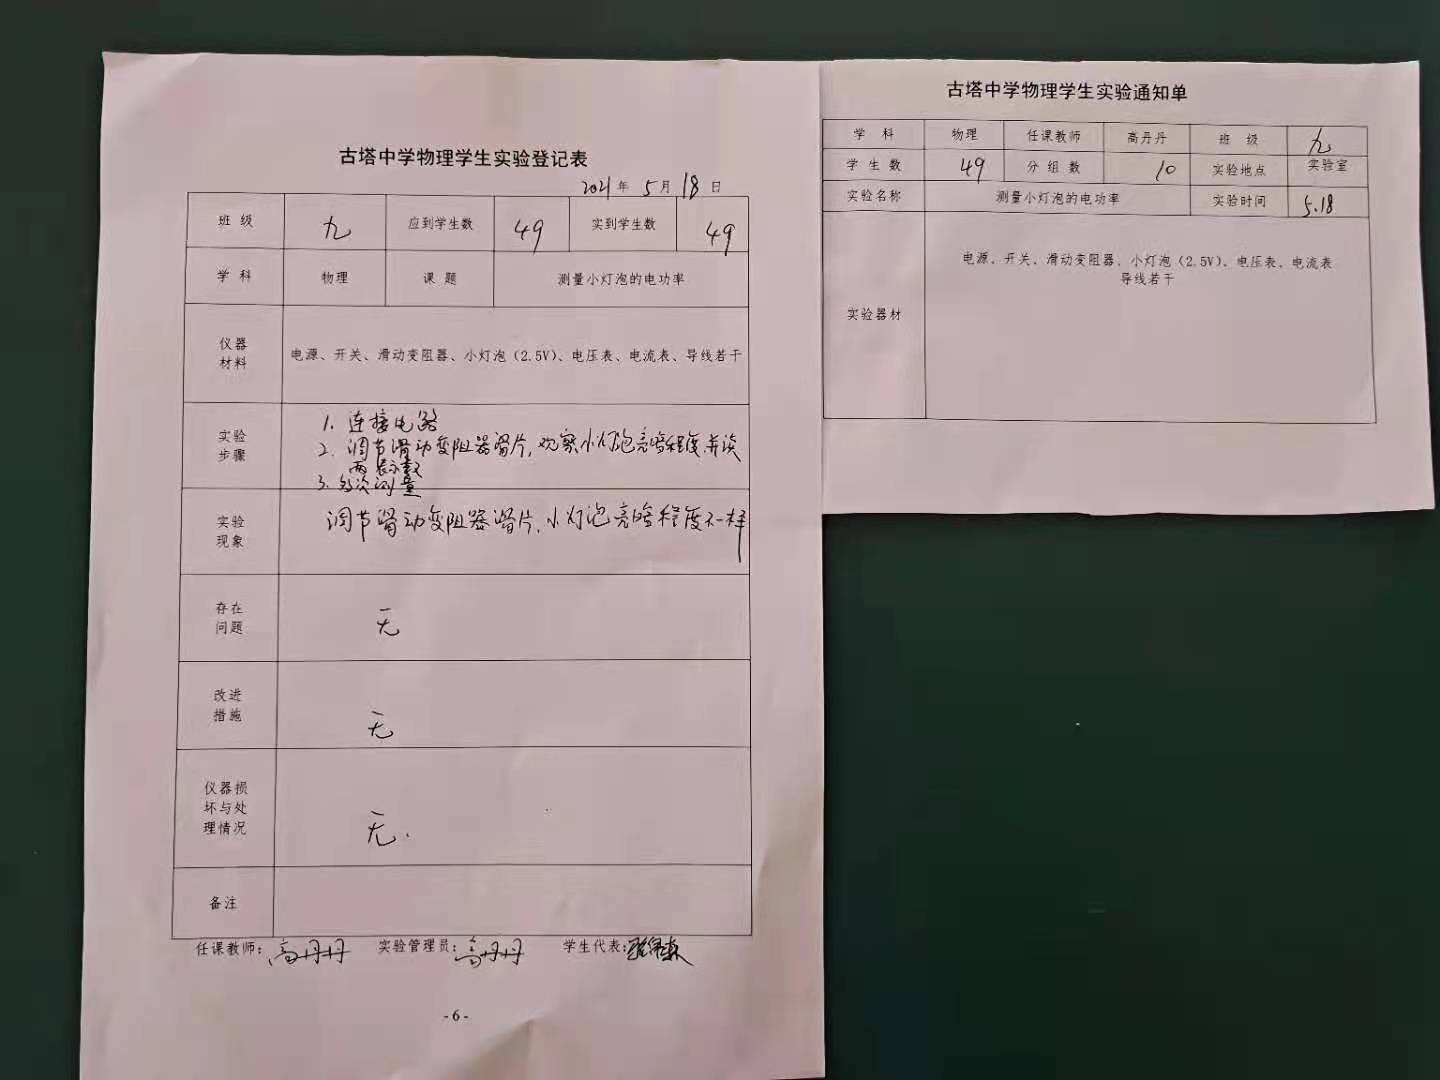 古塔中学物理学生实验登记表
2021年 5月 18日
班 级 九 应到学生数 49 实到学生数 49
学 科 物理 课 题 测量小灯泡的电功率
仪器
材料
电源、开关、滑动变阻器、小灯泡（2.5V）、电压表、电流表、导线若干
实验
步骤
1. 连接电路
2. 调节滑动变阻器滑片，观察小灯泡亮暗程度，并读
两表示数
3. 多次测量
实验
现象
调节滑动变阻器滑片，小灯泡亮暗程度不一样
存在
问题
无
改进
措施
无
仪器损
坏与处
理情况
无.
备注
任课教师：高丹丹 实验管理员：高丹丹 学生代表：
- 6 -
古塔中学物理学生实验通知单
学 科 物理 任课教师 高丹丹 班 级 九
学 生 数 49 分 组 数 10 实验地点 实验室
实验名称 测量小灯泡的电功率 实验时间 5.18
实验器材
电源、开关、滑动变阻器、小灯泡（2.5V）、电压表、电流表
导线若干